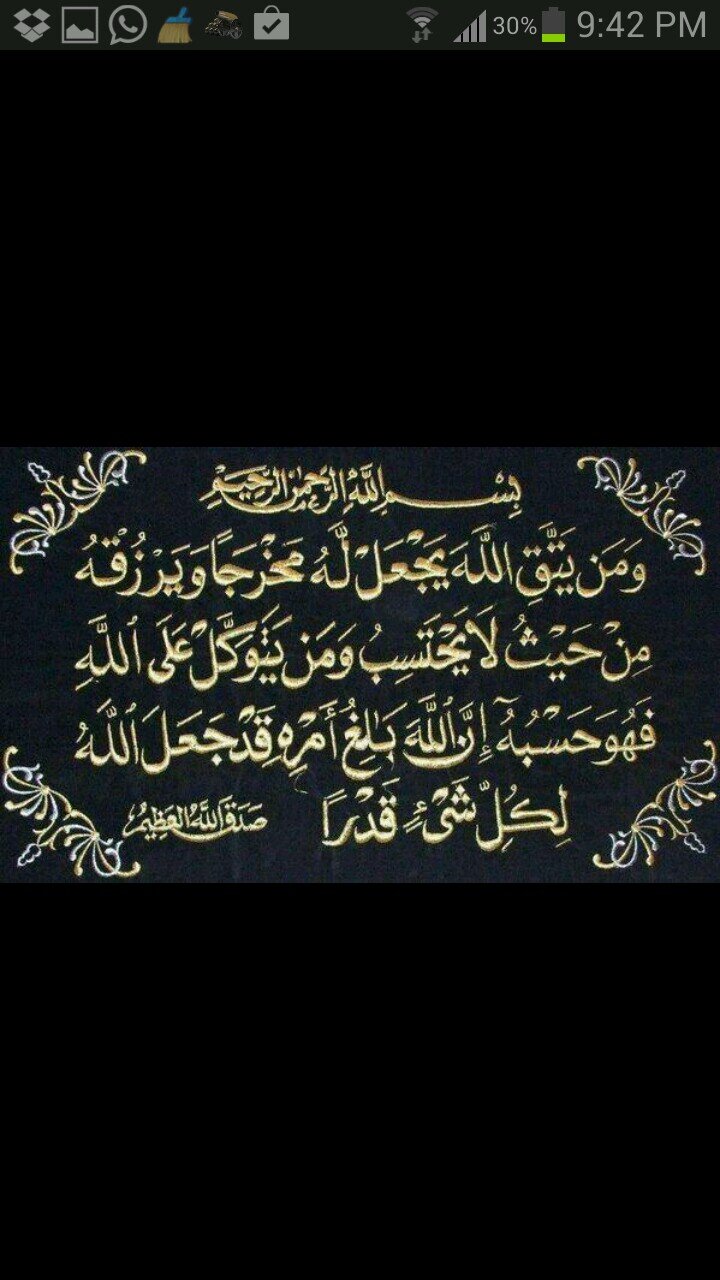 30% 9:42 PM
بِسْمِ اللَّهِ الرَّحْمَٰنِ الرَّحِيمِ
وَمَن يَتَّقِ اللَّهَ يَجْعَلْ لَّهُ مَخْرَجًا وَيَرْزُقْهُ
مِنْ حَيْثُ لَا يَحْتَسِبُ وَمَن يَتَوَكَّلْ عَلَى ٱللَّهِ
فَهُوَ حَسْبُهُۥٓ إِنَّ ٱللَّهَ بَٰلِغُ أَمْرِهِ قَدْ جَعَلَ ٱللَّهُ
لِكُلِّ شَىْءٍ قَدْرًا صَدَقَ اللَّهُ العَظِيمُ